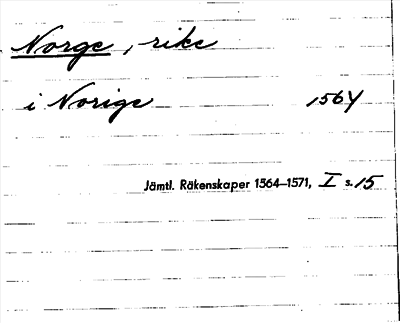 Norge, rike
i Norige 1564
Jämtl. Räkenskaper 1564–1571, I s. 15